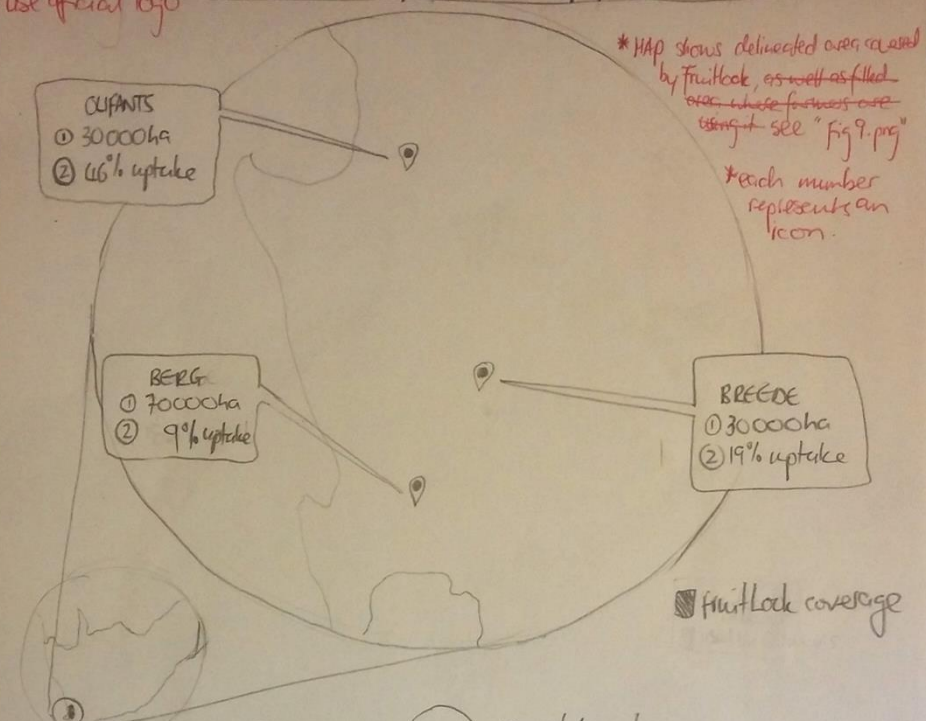 use official logo
* MAP shows delineated area covered
by FruitLook, as well as filled
area, whose farmers are
using it see "Fig 9.png"
*each number
represents an
icon.
OLIFANTS
① 30000ha
② 46% uptake
BERG
① 70000ha
② 9% uptake
BREEDE
① 30000ha
② 19% uptake
FruitLook coverage